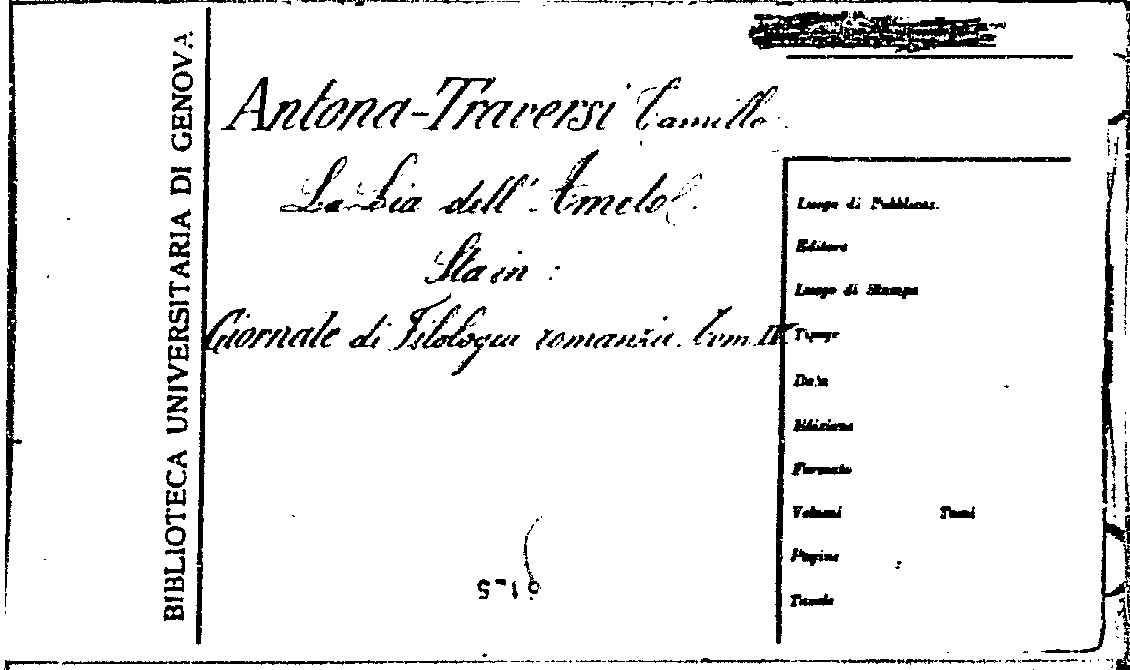 BIBLIOTECA UNIVERSITARIA DI GENOVA
Antona-Traversi Camillo
La Lia dell'Ameto
Sta in:
Giornale di Filologia romanza. Tom. IV
Luogo di Pubblicaz.
Editore
Luogo di Stampa
Tipogr
Data
Edizione
Formato
Volumi Tomi
Pagine
Tavole